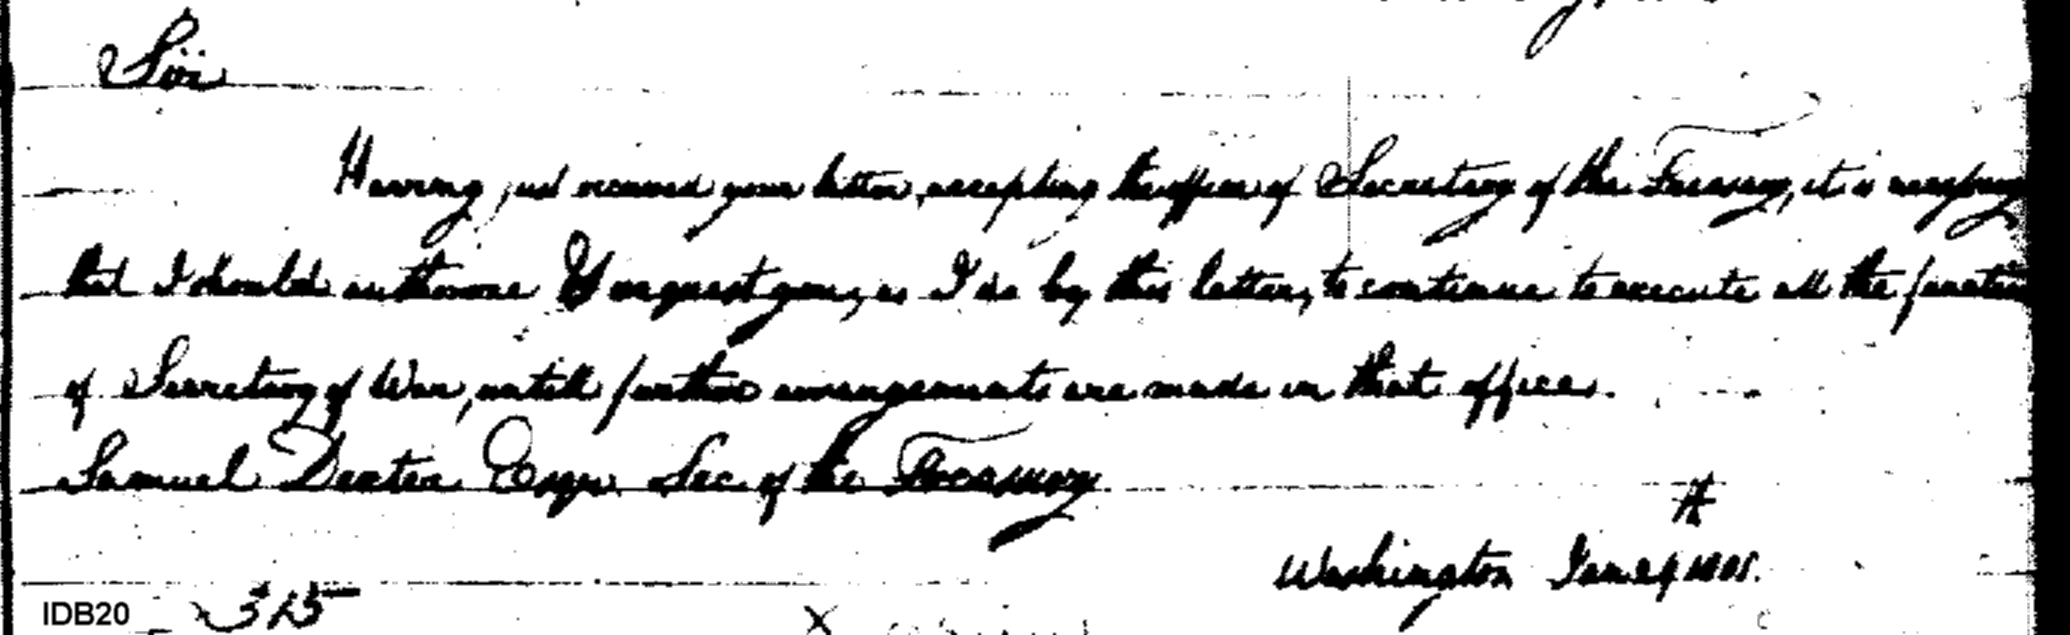 Sir
Having just received your letter, accepting the office of Secretary of the Treasury, it is necessary
that I should authorize & request you, as I do by this letter, to continue to execute all the function
of Secretary of War, untill further arrangements are made in that office.
Samuel Dexter Esqr. Sec. of the Treasury
A
Washington Jan 1801.
IDB20 315
X